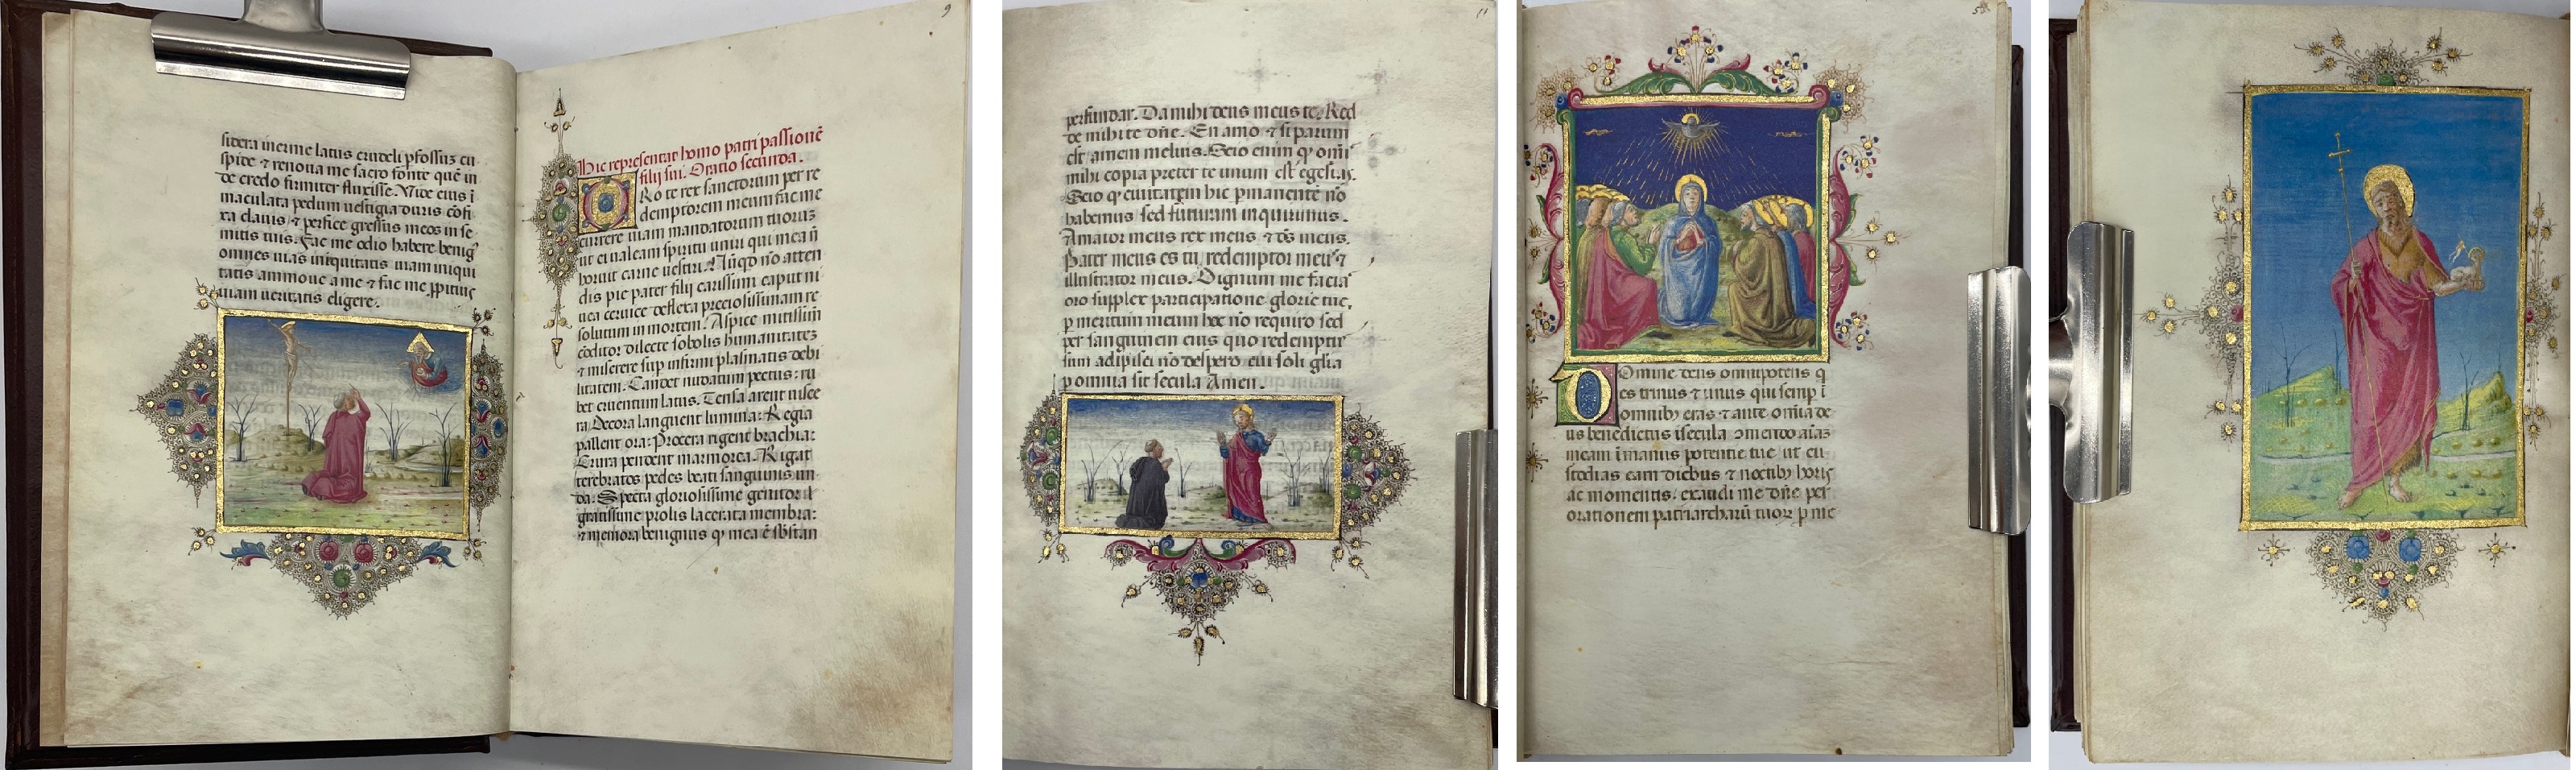 sidera inerme latus crudeli pfossuz cu
spide & renova me sacro fonte que in
de credo fumiter fluxisse. Vide eius i
maculata pedum vestigia duris cofi
xa clavis & perfice gressus meos in se
mitis tuis. Fac me odio habere benig
omnes vias iniquitatis viam iniqui
tatis ammove a me & fac me ppitius
viam veritatis eligere.
9
Hic representat homo patri passione
filij sui. Oratio secunda.
ORo te rex sanctorum per re
demptorem meum fac me
currere viam mandatorum tuoruz
ut ei valeam spiritu uniri qui mea n
horuit carne vestiri. Nuqd no atten
dis pie pater filij carissimi caput ni
vea cervice deflexa preciosissimam re
solutum in mortem. Aspice mitissim
coditor dilecte sobolis humanitatez
& miserere sup infirmi plasmatis debi
litatem. Candet nudatum pectus: ru
bet cruentum latus. Tensa arent visce
ra. Decora languent lumina: Regia
pallent ora: Procera rigent brachia:
Crura pendent marmorea. Rigat
terebratos pedes beati sanguinis un
da. Specta gloriosissime genitor
gratissime prolis lacerata membra:
& memora benignus q mea e sbstan
11
perfundar. Da mihi deus meus te. Red
de mihi te dne. En amo & si parum
est amem melius. Scio enim q omi
mihi copia preter te unum est egestas.
Scio q civitatem hic pmanente no
habemus sed futuram inquirimus.
Amator meus rex meus & ds meus.
Pater meus es tu redemptor meus &
illustrator meus. Dignum me facias
oro supplex participatione glorie tue,
p meritum meum hoc no requiro sed
per sanguinem eius quo redemptus
sum adipisci no despero cui soli glia
p omnia sit secula Amen.
DOmine deus omnipotens q
es trinus & unus qui semp i
omnibz eras & ante omia de
us benedictus i secula omendo aiaz
meam i manus potentie tue ut cu
stodias eam diebus & noctibz horis
ac momentis. exaudi me dne per
orationem patriarcharu tuor p me